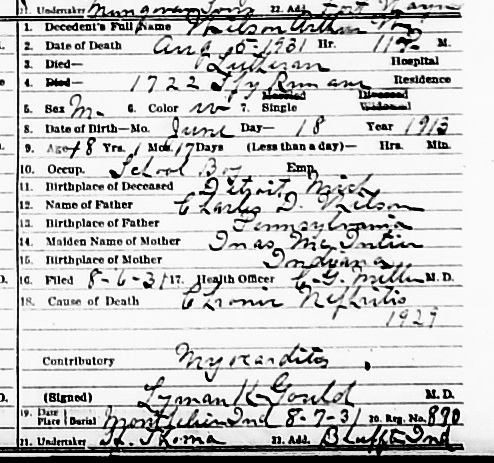 21. Undertaker Mungovan Sons 22. Add. Fort Wayne
1. Decedent's Full Name Wilson Arthur
2. Date of Death Aug 5-1931 Hr. 11 M.
3. Died— Lutheran Hospital
4. Died— 1722 Fy Run ave Residence
Married Divorced
5. Sex M. 6. Color W 7. Single Widowed
8. Date of Birth—Mo. June Day— 18 Year 1913
9. Age 18 Yrs. 1 Mos. 17 Days (Less than a day)— Hrs. Min.
10. Occup. School Boy Emp.
11. Birthplace of Deceased Detroit Mich
12. Name of Father Charles D. Wilson
13. Birthplace of Father Pennsylvania
14. Maiden Name of Mother Inas McIntire
15. Birthplace of Mother Indiana
16. Filed 8-6-31 17. Health Officer E. G. Miller M. D.
18. Cause of Death Chronic Nefritis
1929
Contributory Myocarditos
(Signed) Lyman K Gould M. D.
19. Date Place Burial Montpelier Ind 8-7-31 20. Reg. No. 890
21. Undertaker H. Thoma 22. Add. Bluffton Ind